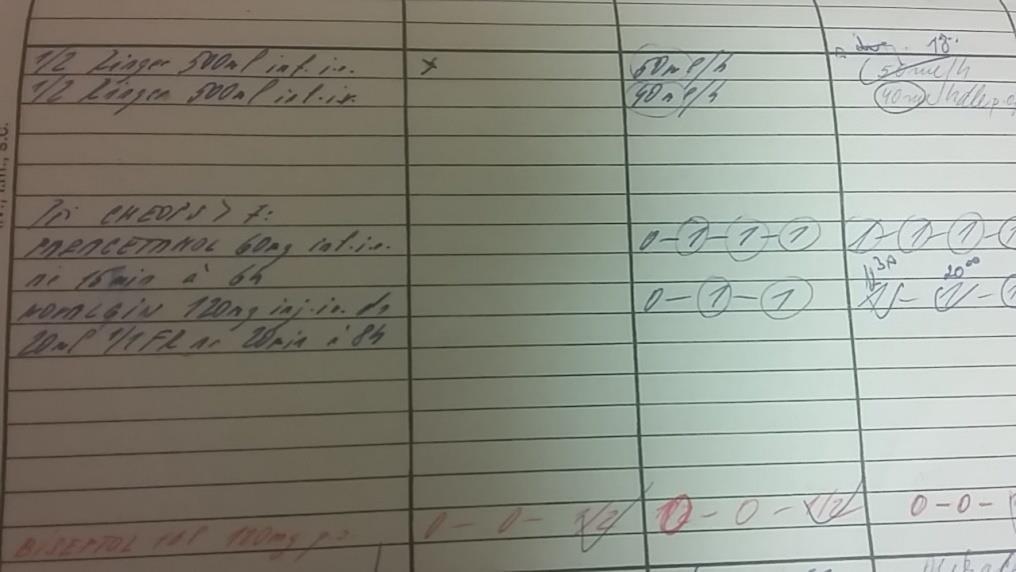 1/2 Ringer 500ml inf.i.v. x 60ml/h
1/2 Ringer 500ml inf.i.v. 40ml/h
18.
50ml/h
40ml/h
Při CHEOPS > 7:
PARACETAMOL 60mg inf.i.v. 0-1-1-1 1-1-1-
na 15min à 6h
NOVALGIN 120mg inj.i.v. do 0-1-1
20ml 1/1 FR na 20min à 8h
11 30
20 00
BISEPTOL tbl 120mg p.o. 0-0-1/2 0-0-1/2 0-0-